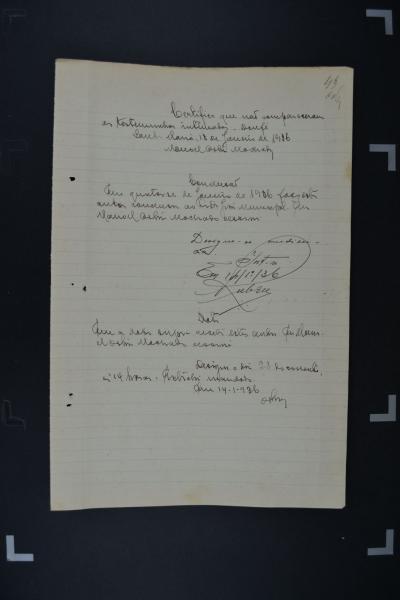 Certifico que não compareceram
as testemunhas intimadas. Dou fé
Santa Maria, 13 de Janeiro de 1936
Manoel Machado
Conclusão
Em quatorze de Janeiro de 1936 faço estes
autos conclusos ao Juiz Municipal. Eu
Manoel Machado escrevi
Designe-se
Em 14/1/36
Data
Em a data supra recebi estes autos. Eu Mano-
el Machado escrevi
Designo o dia 28 do corrente,
ás 14 horas.
Em 14-1-936